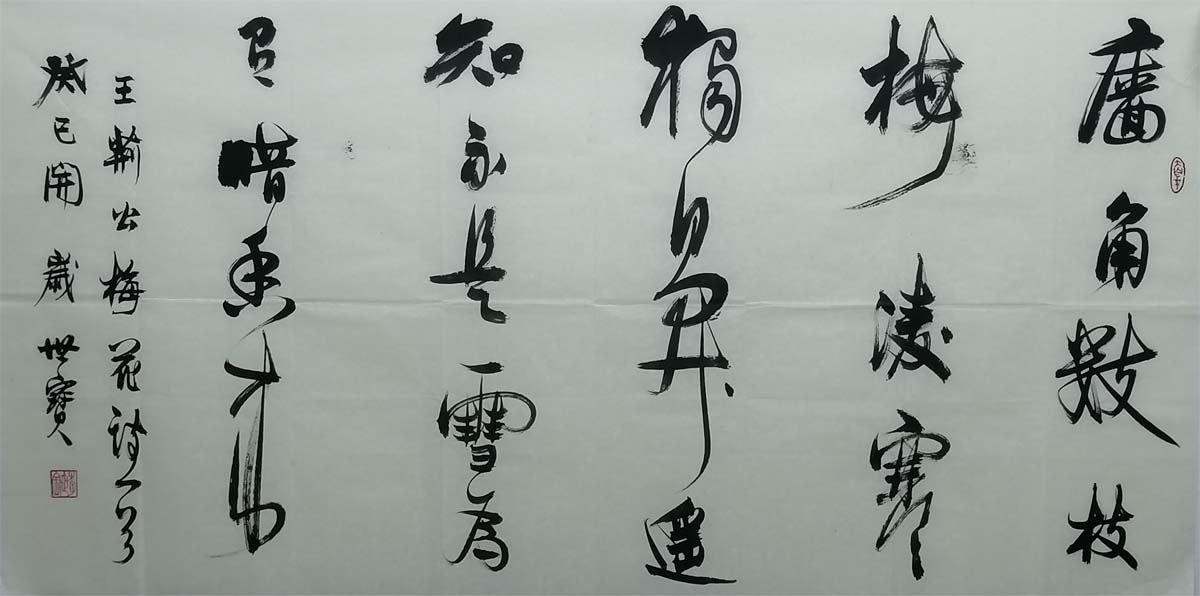 廧角數枝
梅凌寒
獨自開遥
知不是雪為
有暗香來
王荆公梅花詩一首
癸巳開歲世寶